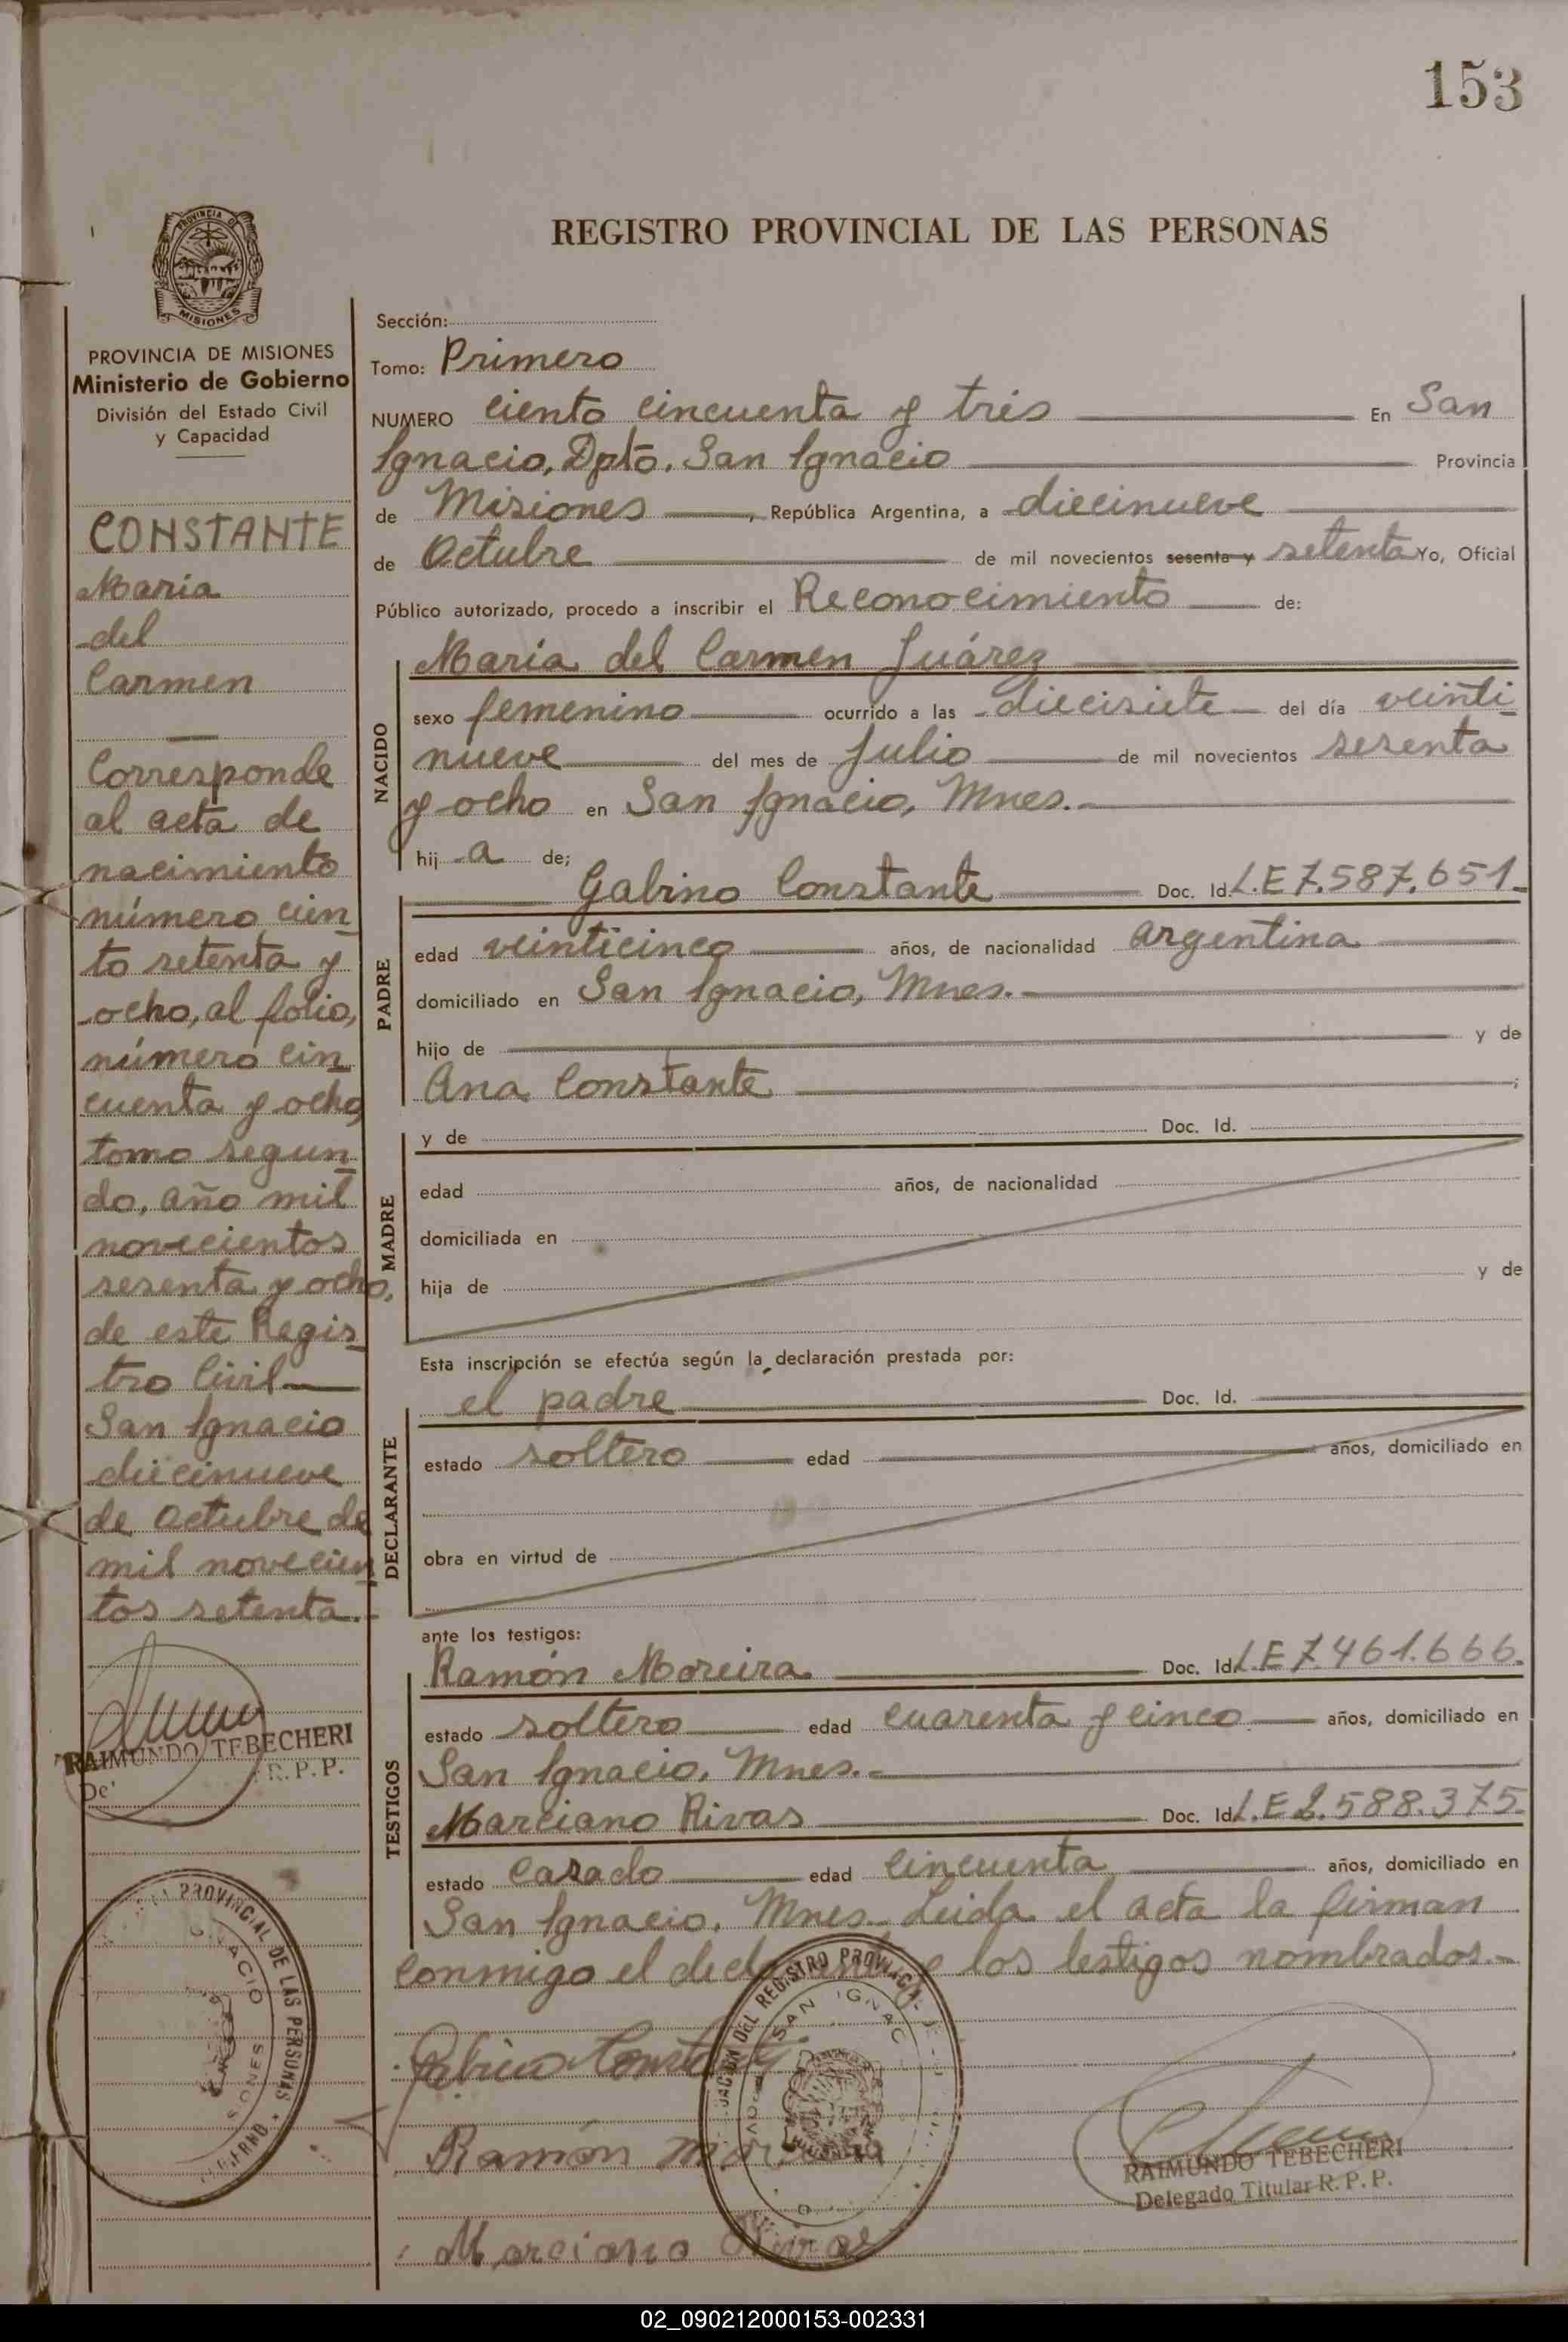 153
PROVINCIA DE
MISIONES
PROVINCIA DE MISIONES
Ministerio de Gobierno
División del Estado Civil
y Capacidad
CONSTANTE
Maria
del
Carmen
Corresponde
al acta de
nacimiento
número cien
to setenta y
ocho, al folio,
número cin
cuenta y ocho,
tomo segun
do, año mil
novecientos
sesenta y ocho,
de este Regis
tro Civil
San Ignacio
diecinueve
de octubre de
mil novecien
tos setenta.-
RAIMUNDO TEBECHERI
R.P.P.
PROVINCIAL DE LAS PERSONAS
REGISTRO PROVINCIAL DE LAS PERSONAS
Sección:
Tomo: Primero
NUMERO ciento cincuenta y tres En San
Ignacio, Dpto. San Ignacio Provincia
de Misiones, República Argentina, a diecinueve
de Octubre de mil novecientos sesenta y setenta Yo, Oficial
Público autorizado, procedo a inscribir el Reconocimiento de:
NACIDO
Maria del Carmen Juárez
sexo femenino ocurrido a las diecisiete del día veinti
nueve del mes de Julio de mil novecientos sesenta
y ocho en San Ignacio, Mnes.
hij a de;
PADRE
Gabino Constante Doc. Id. L.E 7.587.651.-
edad veinticinco años, de nacionalidad argentina
domiciliado en San Ignacio, Mnes.
hijo de y de
Ana Constante ;
MADRE
y de Doc. Id.
edad años, de nacionalidad
domiciliada en
hija de y de
Esta inscripción se efectúa según la declaración prestada por:
DECLARANTE
el padre Doc. Id.
estado soltero edad años, domiciliado en
obra en virtud de
ante los testigos:
TESTIGOS
Ramón Moreira. Doc. Id. L.E 7.461.666.
estado soltero edad cuarenta y cinco años, domiciliado en
San Ignacio, Mnes.-
Marciano Rivas Doc. Id. L.E 2.588.375.
estado casado edad cincuenta años, domiciliado en
San Ignacio, Mnes.- Leida el acta la firman
conmigo el declarante y los testigos nombrados.-
DEL REGISTRO PROVINCIAL
SAN IGNAC
Ramón
Marciano Rivas
RAIMUNDO TEBECHERI
Delegado Titular R.P.P.
02_090212000153-002331